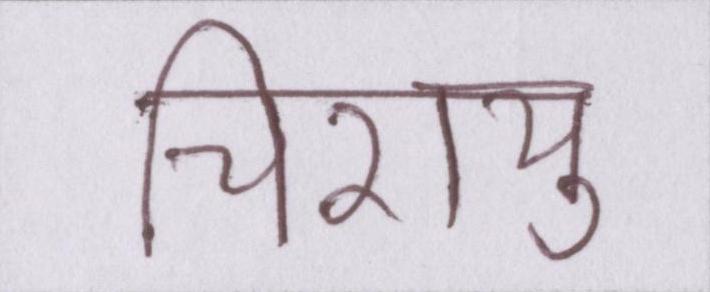 चिरायु